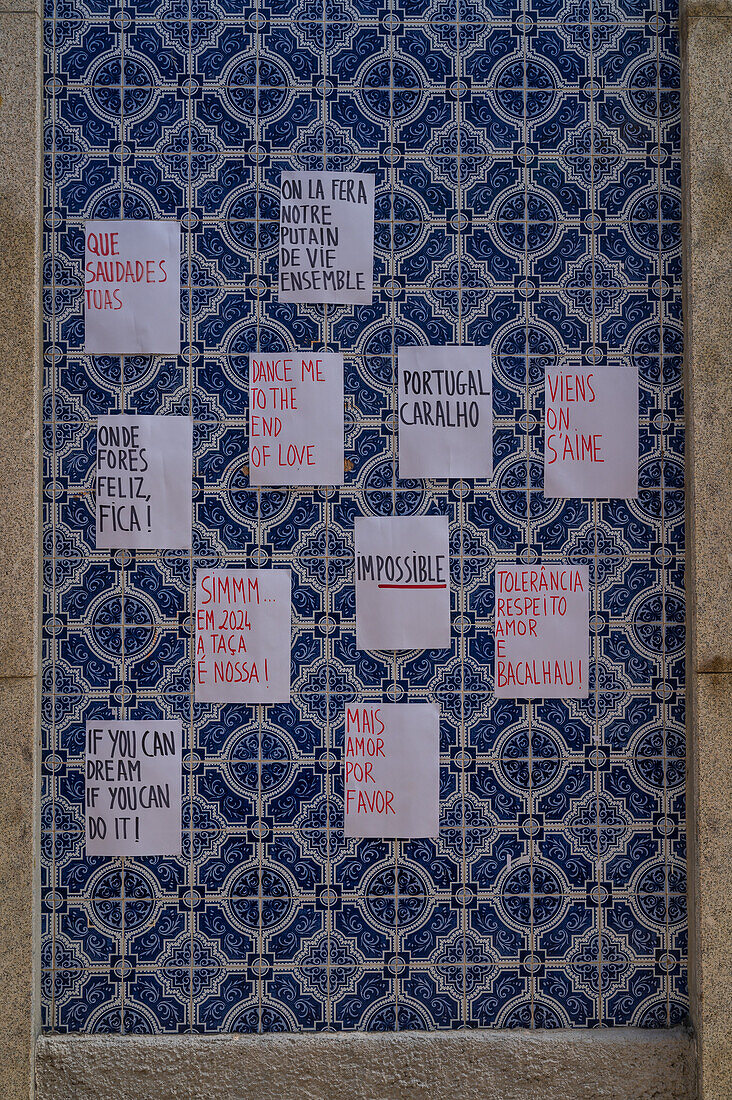 ON LA FERA
NOTRE
PUTAIN
DE VIE
ENSEMBLE
QUE
SAUDADES
TUAS
DANCE ME
TO THE
END
OF LOVE
PORTUGAL
CARALHO
VIENS
ON
S'AIME
ONDE
FORES
FELIZ,
FICA!
IMPOSSIBLE
SIMMM...
EM 2024
A TAÇA
É NOSSA!
TOLERÂNCIA
RESPEITO
AMOR
E
BACALHAU!
IF YOU CAN
DREAM
IF YOU CAN
DO IT!
MAIS
AMOR
POR
FAVOR